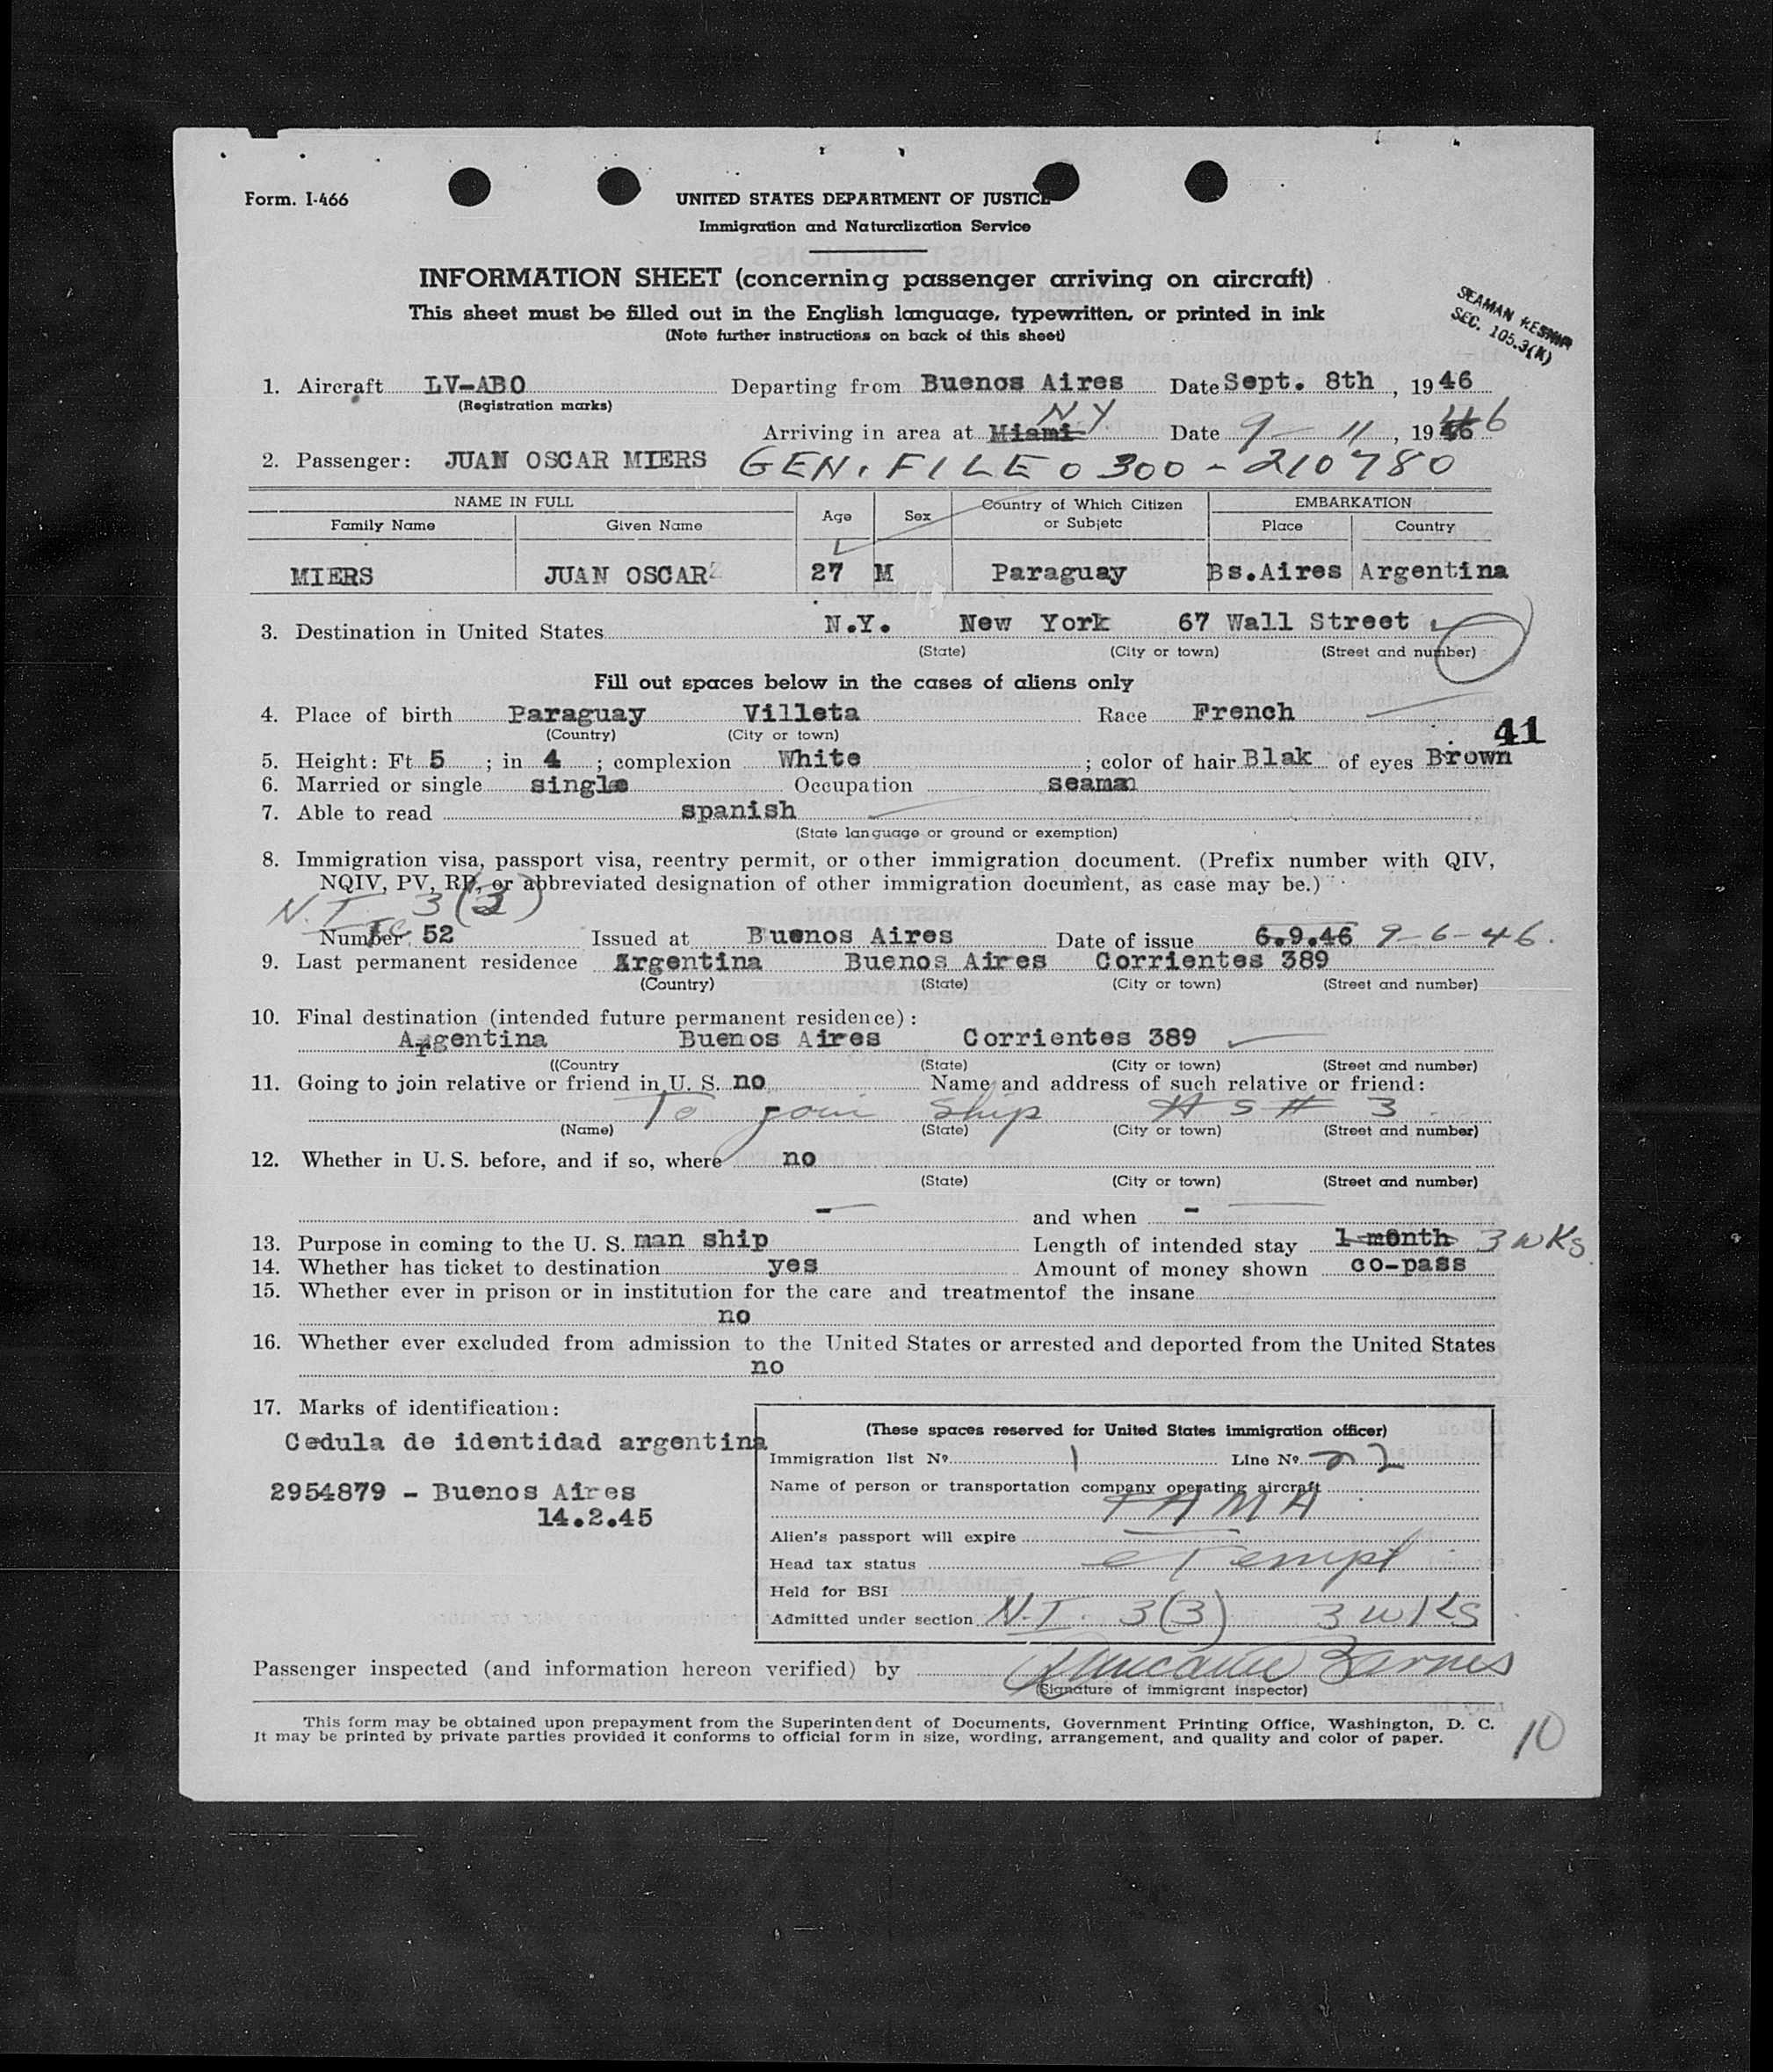 Form. I-466
UNITED STATES DEPARTMENT OF JUSTICE
Immigration and Naturalization Service
INFORMATION SHEET (concerning passenger arriving on aircraft)
This sheet must be filled out in the English language, typewritten, or printed in ink
(Note further instructions on back of this sheet)
SEAMAN
SEC. 105.3(K)
1. Aircraft LV-ABO Departing from Buenos Aires Date Sept. 8th, 1946
(Registration marks)
NY
Arriving in area at Miami Date 9 - 11, 1946 46
2. Passenger: JUAN OSCAR MIERS GEN. FILE 0300-210780
NAME IN FULL Age Sex Country of Which Citizen or Subjetc EMBARKATION
Family Name Given Name Place Country
MIERS JUAN OSCAR 27 M Paraguay Bs.Aires Argentina
3. Destination in United States N.Y. New York 67 Wall Street
(State) (City or town) (Street and number)
Fill out spaces below in the cases of aliens only
4. Place of birth Paraguay Villeta Race French
(Country) (City or town)
41
5. Height: Ft 5 ; in 4 ; complexion White ; color of hair Blak of eyes Brown
6. Married or single single Occupation seaman
7. Able to read spanish
(State language or ground or exemption)
8. Immigration visa, passport visa, reentry permit, or other immigration document. (Prefix number with QIV,
NQIV, PV, RP, or abbreviated designation of other immigration document, as case may be.)
N.I. 3(3)
Number 52 Issued at Buenos Aires Date of issue 6.9.46 9-6-46.
9. Last permanent residence Argentina Buenos Aires Corrientes 389
(Country) (State) (City or town) (Street and number)
10. Final destination (intended future permanent residence):
Argentina Buenos Aires Corrientes 389
((Country (State) (City or town) (Street and number)
11. Going to join relative or friend in U. S. no Name and address of such relative or friend:
To join ship 3
(Name) (State) (City or town) (Street and number)
12. Whether in U. S. before, and if so, where no
(State) (City or town) (Street and number)
- and when -
13. Purpose in coming to the U. S. man ship Length of intended stay 1 month 3 wks
14. Whether has ticket to destination yes Amount of money shown co-pass
15. Whether ever in prison or in institution for the care and treatmentof the insane
no
16. Whether ever excluded from admission to the United States or arrested and deported from the United States
no
17. Marks of identification:
Cedula de identidad argentina
2954879 - Buenos Aires
14.2.45
(These spaces reserved for United States immigration officer)
Immigration list Nº 1 Line Nº 22
Name of person or transportation company operating aircraft
FAMA
Alien's passport will expire
Head tax status exempt
Held for BSI
Admitted under section N.I. 3(3) 3 wks
Passenger inspected (and information hereon verified) by Barnes
(Signature of immigrant inspector)
This form may be obtained upon prepayment from the Superintendent of Documents, Government Printing Office, Washington, D. C.
It may be printed by private parties provided it conforms to official form in size, wording, arrangement, and quality and color of paper.
10